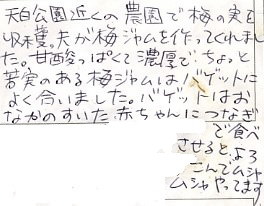 天白公園近くの農園で梅の実を
収穫。夫が梅ジャムを作ってくれまし
た。甘酸っぱくて濃厚で、ちょっと
苦実のある梅ジャムはバゲットに
よく合いました。バゲットはお
なかのすいた赤ちゃんにつなぎ
で食べ
させると、よろ
こんでムシャ
ムシャやってます